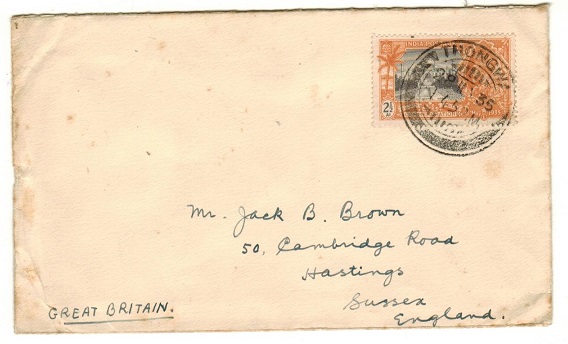 INDIA POSTAGE
THONGWA
35
2½
Mr. Jack B. Brown
50, Cambridge Road
Hastings
Sussex
England.
GREAT BRITAIN.